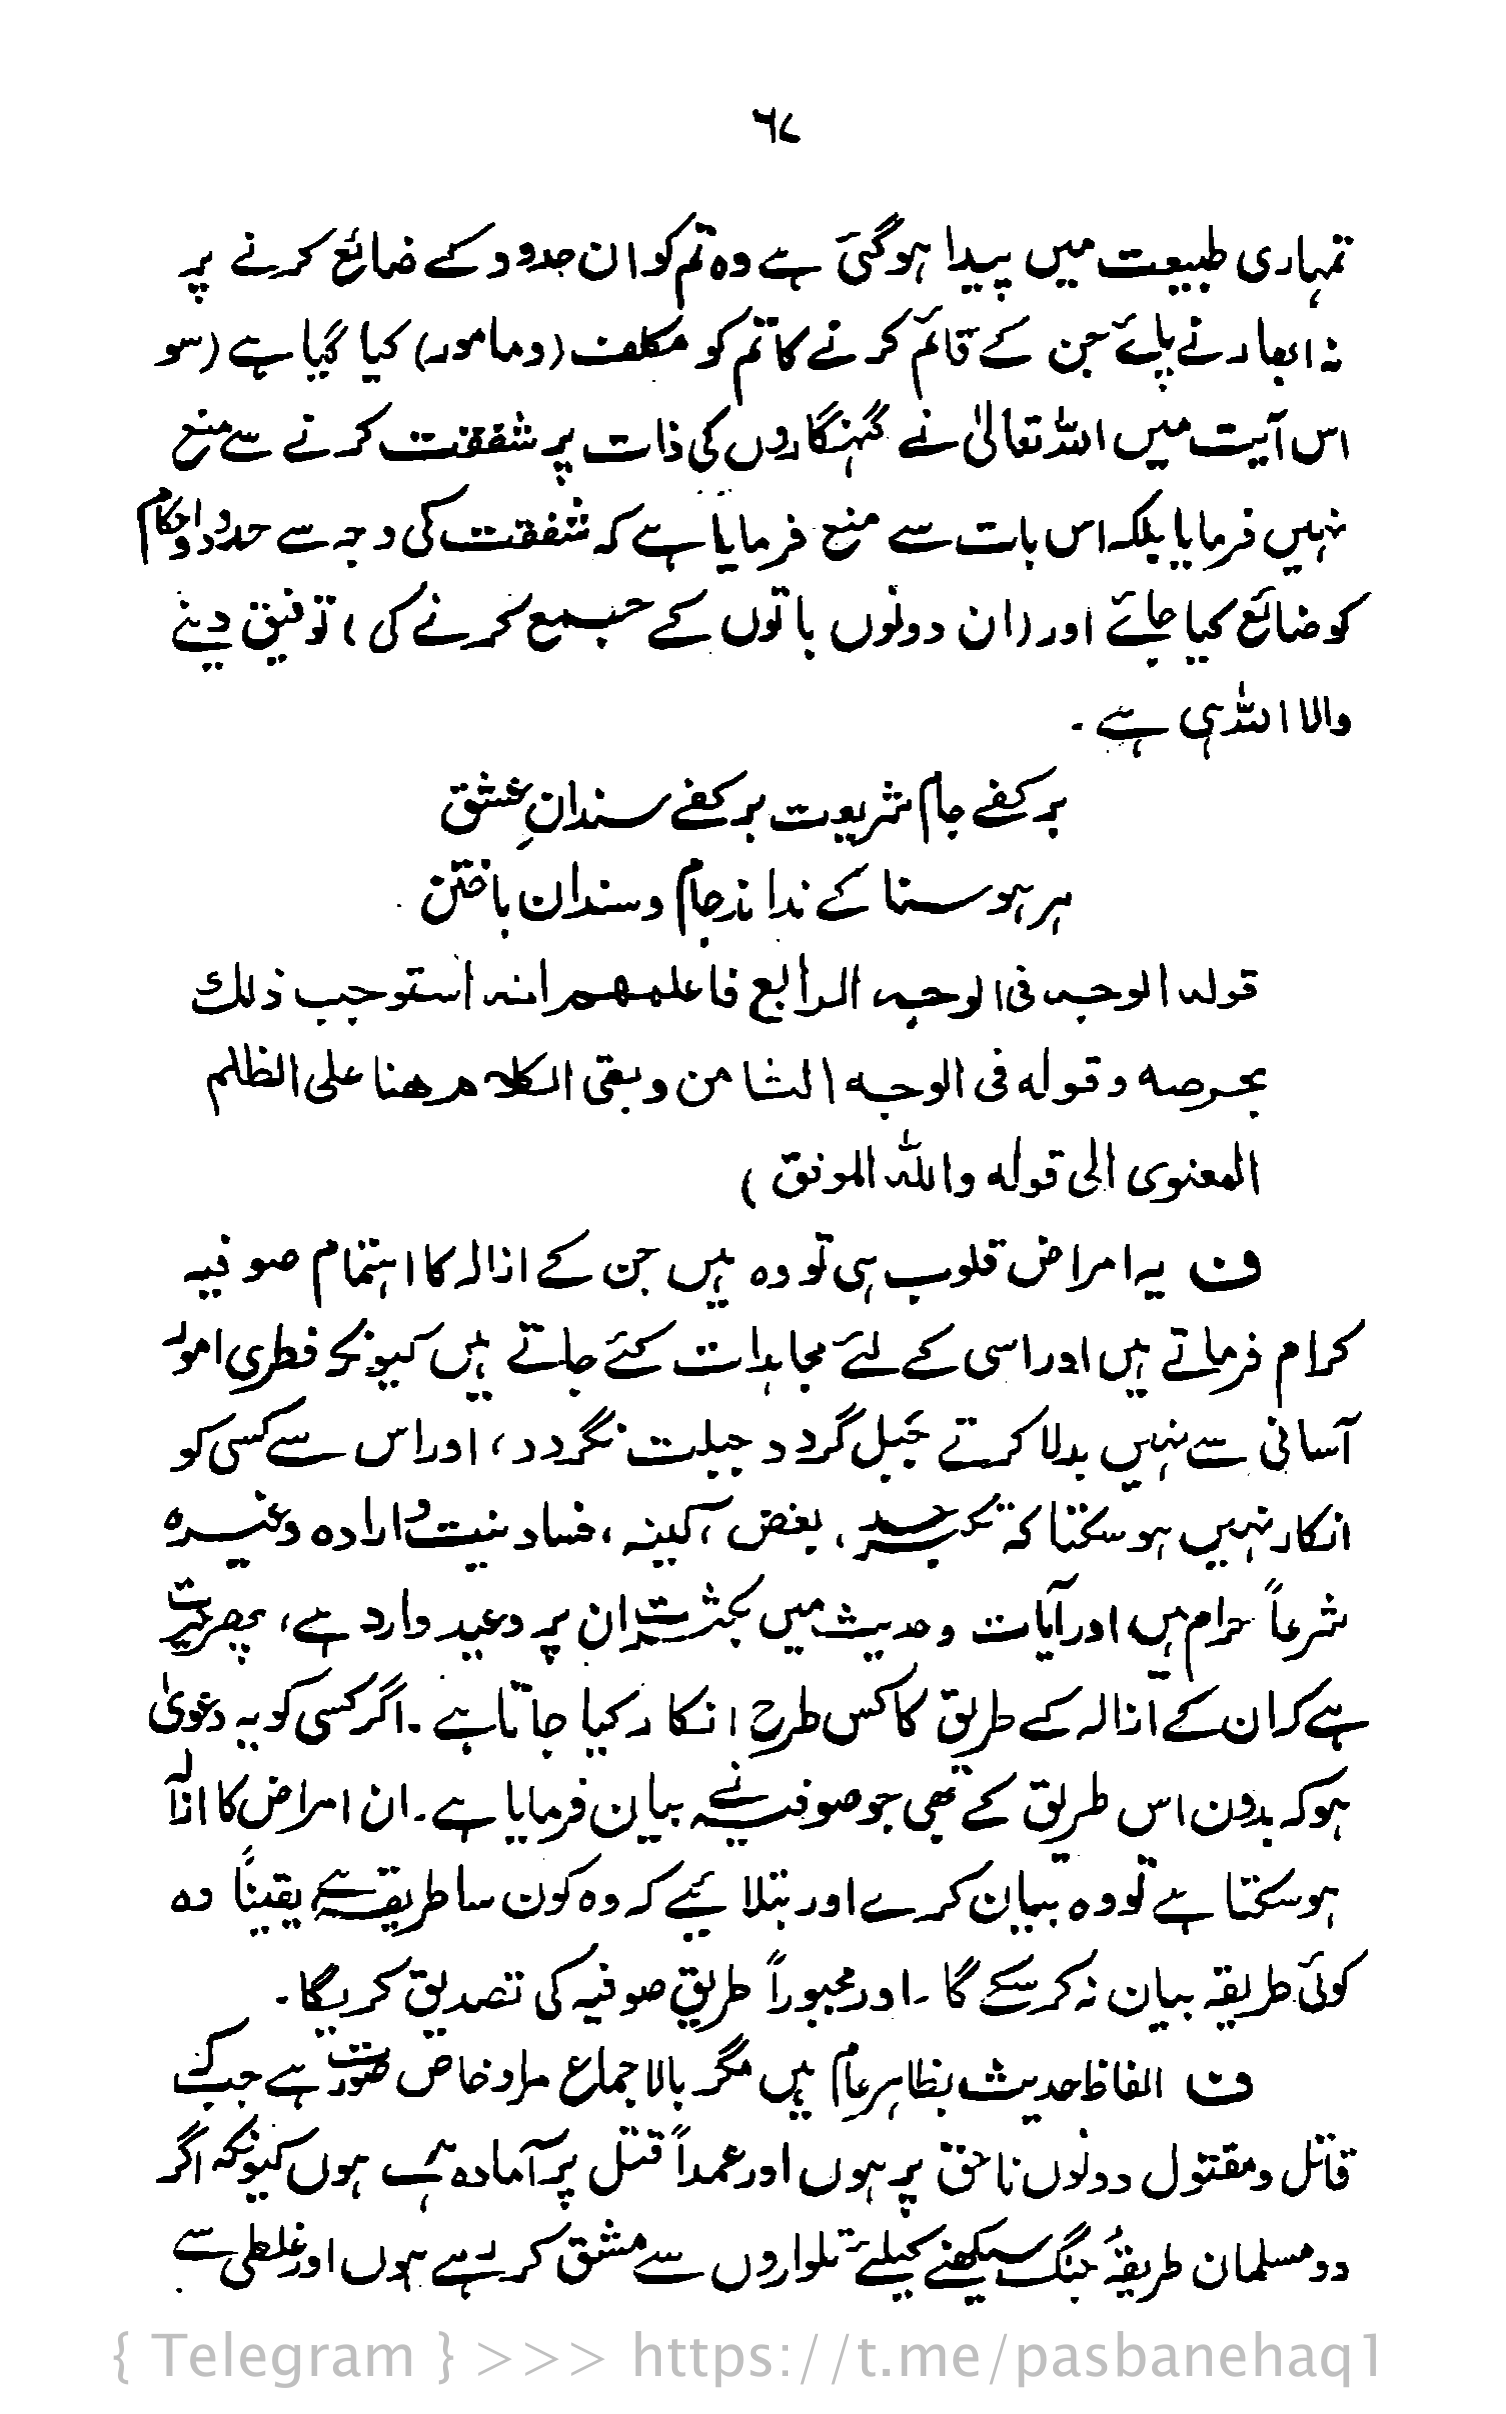 ۶۷
تمہاری طبیعت میں پیدا ہوگئی ہے وہ تم کو ان حدود کے ضائع کرنے پر
نہ ابھارنے پائے جن کے قائم کرنے کا تم کو مکلف (و مامور) کیا گیا ہے (سو
اس آیت میں اللہ تعالیٰ نے گنہگاروں کی ذات پر شفقت کرنے سے منع
نہیں فرمایا بلکہ اس بات سے منع فرمایا ہے کہ شفقت کی وجہ سے حدود و احکام
کو ضائع کیا جائے اور (ان دونوں باتوں کے جمع کرنے کی) توفیق دینے
والا اللہ ہی ہے ۔
بر کفے جام شریعت بر کفے سندانِ عشق
ہر ہوسنا کے نداند جام و سندان باختن
قولہ الوجہ فی الوجہ الرابع فاعلمهم انہ استوجب ذلك
بحرصہ و قولہ فی الوجہ الثامن و بقی الکلام ھنا علی الظلم
المعنوی الی قولہ واللہ الموفق )
ف یہ امراض قلوب ہی تو وہ ہیں جن کے ازالہ کا اہتمام صوفیہ
کرام فرماتے ہیں اور اسی کے لئے مجاہدات کئے جاتے ہیں کیونکہ فطری امور
آسانی سے نہیں بدلا کرتے جَبل گردد جبلت نگردد، اور اس سے کسی کو
انکار نہیں ہو سکتا کہ تکبر حسد، بغض، کینہ، فساد نیت و ارادہ وغیرہ
شرعاً حرام ہیں اور آیات و حدیث میں بکثرت ان پر وعید وارد ہے، پھر حیرت
ہے کہ ان کے ازالہ کے طریق کا کس طرح انکار کیا جاتا ہے ۔ اگر کسی کو یہ دعویٰ
ہو کہ بدون اس طریق کے بھی جو صوفیہ نے بیان فرمایا ہے ۔ ان امراض کا ازالہ
ہو سکتا ہے تو وہ بیان کرے اور بتلائیے کہ وہ کون سا طریقہ ہے یقیناً وہ
کوئی طریقہ بیان نہ کر سکے گا ۔ اور مجبوراً طریق صوفیہ کی تصدیق کریگا ۔
ف الفاظ حدیث بظاہر عام ہیں مگر بالاجماع مراد خاص صورت ہے جب کہ
قاتل و مقتول دونوں ناحق پر ہوں اور عمداً قتل پر آمادہ ہوئے ہوں کیونکہ اگر
دو مسلمان طریقۂ جنگ سیکھنے کیلئے تلواروں سے مشق کر رہے ہوں اور غلطی سے
{ Telegram } >>> https://t.me/pasbanehaq1